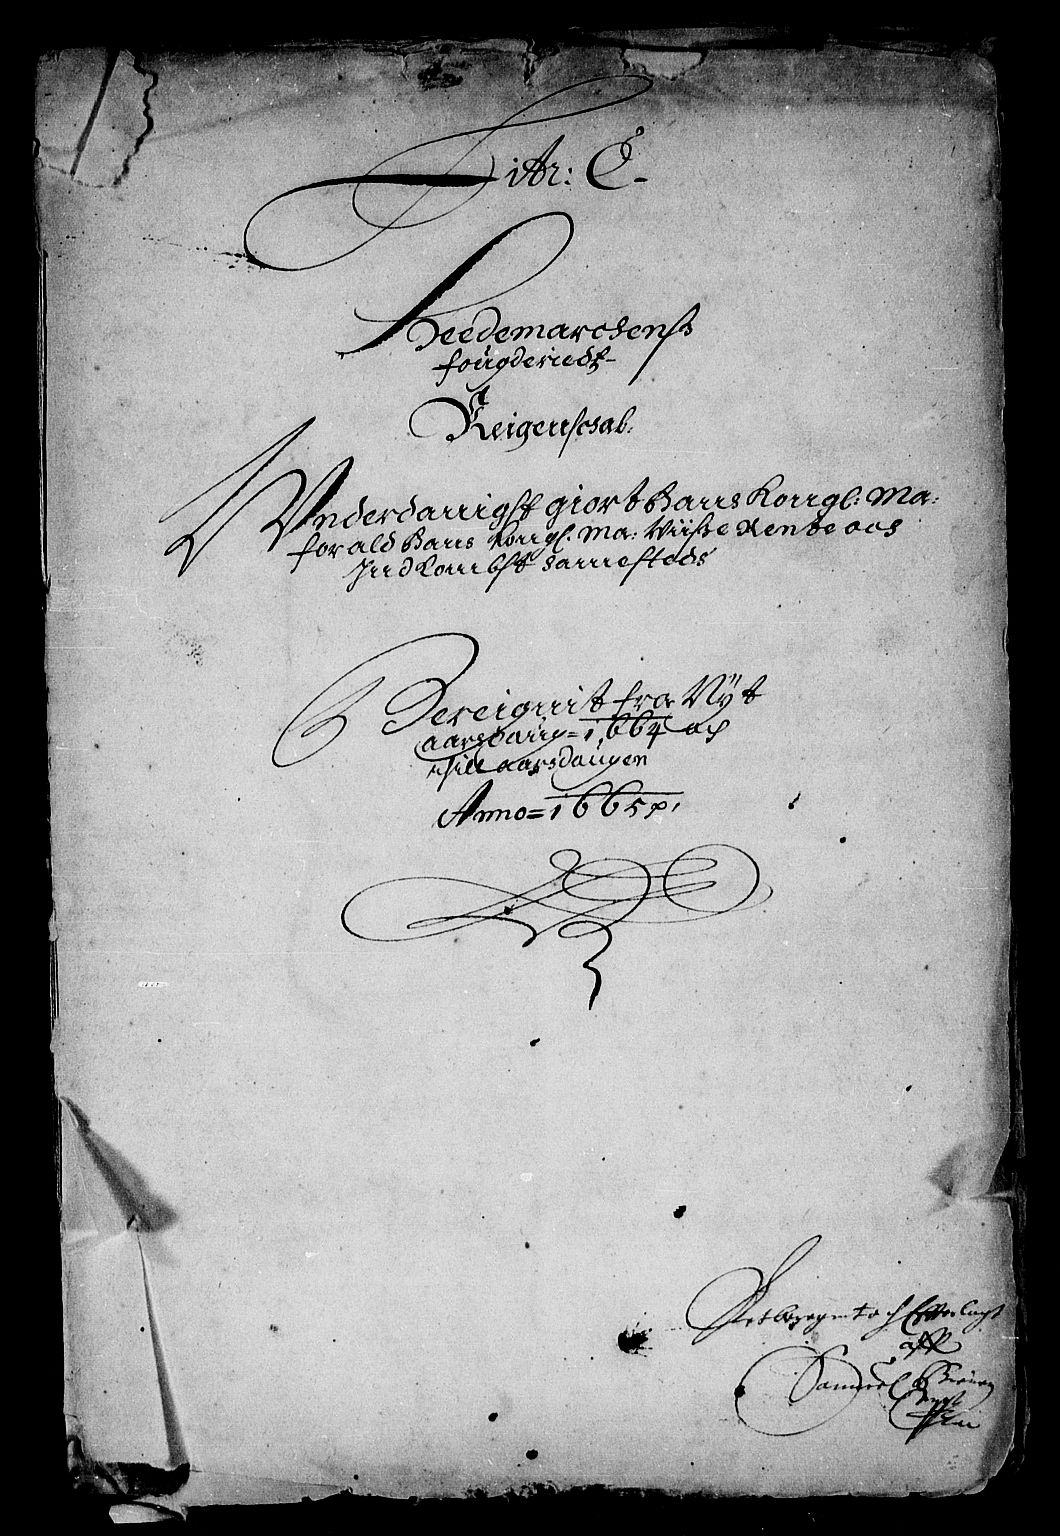 Litr: C
Heedemarchens
fougderiedtz
Reigenschab:
Underdanigst giort Hans Kongl: Ma:
for ald Hans Kongl. Ma: Viisse Rente och
Indkombst sammesteds
Bereignit fra Nÿt
aarsdaug 1664 och
till aarsdaugen
Anno 1665
och
aff
Samuel